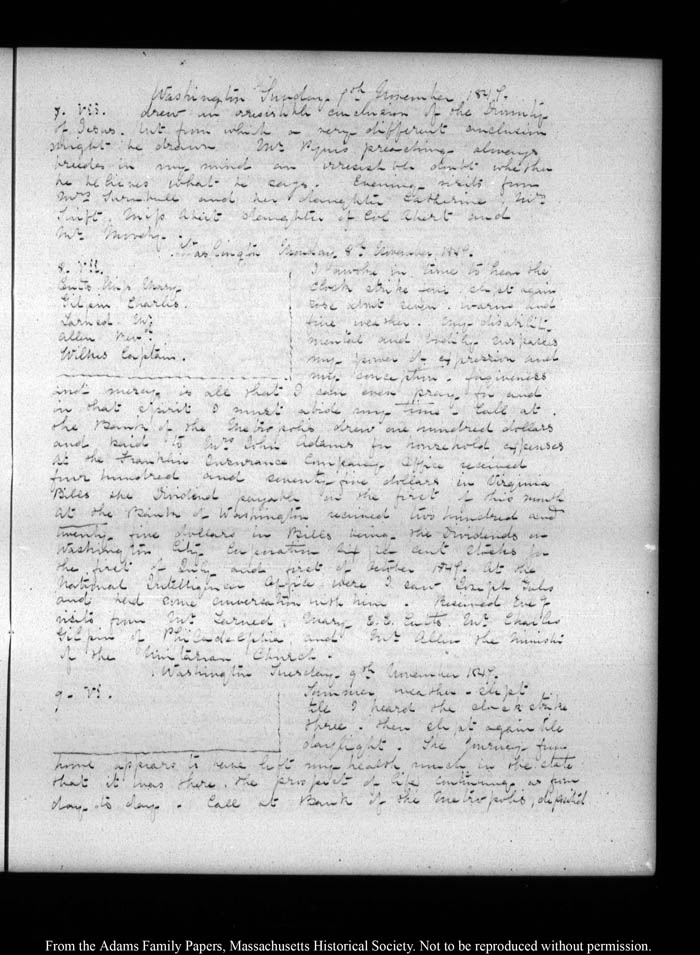 Washington Sunday 7th November 1847.
7. VII. drew an irresistible conclusion of the Divinity
of Jesus. but from which a very different conclusion
might be drawn Mr Pyne's preaching always
breeds in my mind an irresistible doubt whether
he believes what he says. Evening visits from
Mrs Turnbull and her daughter Catherine, Mrs
Swift, Miss Abert daughter of Col Abert and
Mr Moody.
Washington Monday 8th November 1847.
8. VII.
Cutts Miss Mary
Gilpin Charles.
Larned Mr
Allen Revd.
Wilkes Captain.
I awoke in time to hear the
clock strike four. slept again
rose about seven. warm and
fine weather. my disability
mental and bodily surpasses
my power of expression and
my conception. forgiveness
and mercy is all that I can even pray for and
in that spirit I must abide my time. Call at
the Bank of the Metropolis drew one hundred dollars
and paid to Mrs John Adams for household expenses
At the Franklin Insurance Company Office received
four hundred and seventy five dollars in Virginia
Bills the Dividend payable on the first of this month
at the Bank of Washington received two hundred and
twenty five dollars in Bills being the Dividends on
Washington City Corporation six per cent stocks for
the first of July and first of October 1847. At the
National Intelligencer Office where I saw Joseph Gales
and held some conversation with him. Received Eveg
visits from Mr Larned, Mary E. E. Cutts, Mr Charles
Gilpin of Philadelphia, and Mr Allen the Minister
of the Unitarian Church.
Washington Tuesday 9th November 1847.
9. VI.
Summer weather. slept
till I heard the clock strike
three. then slept again till
daylight. The journey from
home appears to have left my health much in the state
that it was there, the prospect of life continuing as from
day to day. Call at Bank of the Metropolis, deposited
From the Adams Family Papers, Massachusetts Historical Society. Not to be reproduced without permission.